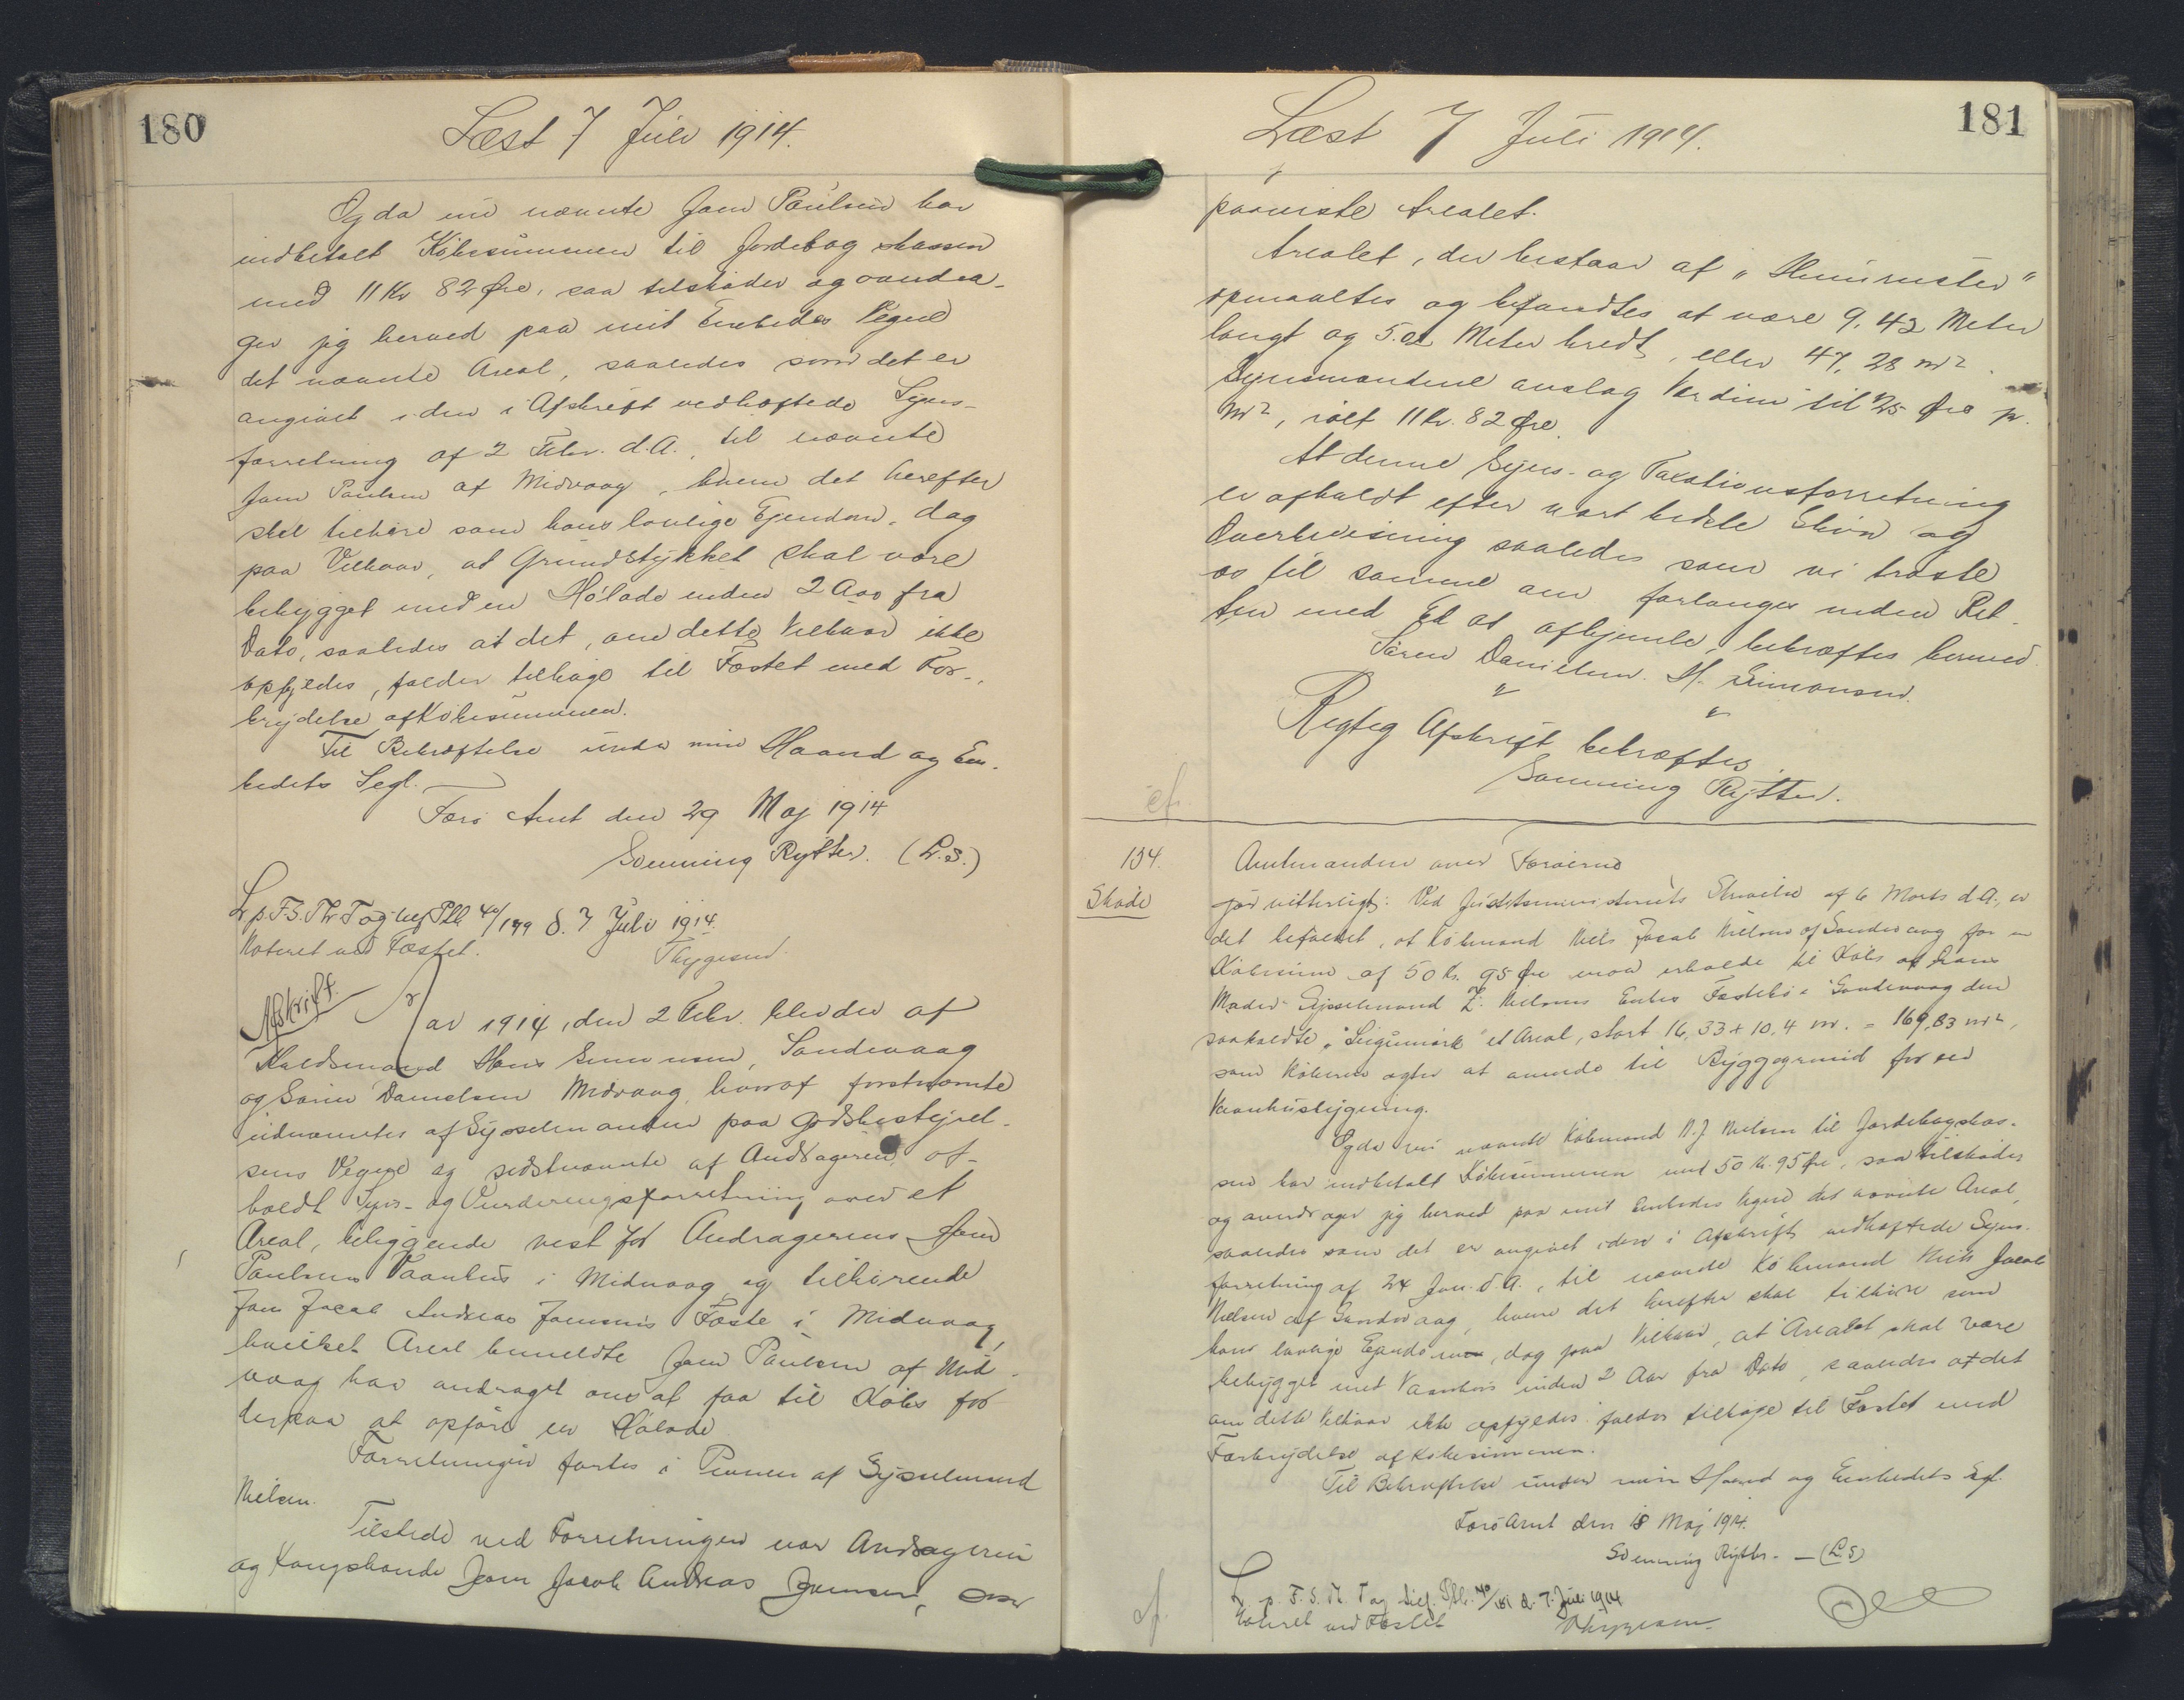 180
Læst 7 Juli 1914.
Og da nu nævnte Jam Paulsen har
indbetalt Købesummen til Jordebogskassen
med 11 Kr 82 Øre, saa tilskøder og overdra-
ger jeg herved paa mit Embedes Vegne
det nævnte Areal, saaledes som det er
angivet i den i Afskrift vedhæftede Syns-
forretning af 2 Febr. d.A., til nævnte
Jam Paulsen af Midvaag, hvem det herefter
skal tilhøre som hans lovlige Ejendom, dog
paa Vilkaar, at Grundstykket skal være
bebygget med en Hølade inden 2 Aar fra
Dato, saaledes at det, om dette Vilkaar ikke
opfyldes, falder tilbage til Fæstet med For-
brydelse af Købesummen.
Til Bekræftelse under min Haand og Em-
bedets Segl.
Færø Amt den 29 Maj 1914
Svenning Rytter. (L.S.)
L. p. F. S. Th. T og lief. Pbl. 40/179 d. 7 Juli 1914.
Noteret ved Fæstet. Thygesen.
Afskrift.
Aar 1914, den 2 Febr. blev der af
Huldsmand Hans Simonsen, Sandevaag
og Søren Danielsen Midvaag, hvoraf førstnævnte
udnævntes af Sysselmanden paa Godsbestyrel-
sens Vegne og sidstnævnte af Andrageren, af-
holdt Syns- og Vurderingsforretning over et
Areal, beliggende vest for Andragerens Jam
Paulsens Vaanhus i Midvaag og tilhørende
Jam Jacob Andreas Jamsens Fæste i Midvaag,
hvilket Areal bemeldte Jam Paulsen af Mid-
vaag har andraget om at faa til Købs for
derpaa at opføre en Hølade.
Forretningen førtes i Pennen af Sysselmand
Nielsen.
Tilstede ved Forretningen var Andrageren
og Kongsbonde Jam Jacob Andreas Jamsen, som
181
Læst 7 Juli 1914.
paaviste Arealet.
Arealet, der bestaar af "Heimrustir"
opmaaltes og befandtes at være 9.42 Meter
langt og 5.02 Meter bredt, eller 47,28 m²
Synsmændene anslog Værdien til 25 Øre pr.
m², ialt 11 Kr. 82 Øre.
At denne Syns- og Taxationsforretning
er afholdt efter vort bedste Skøn og
Overbevisning saaledes som vi trøste
os til samme om forlanges inden Ret-
ten med Ed at afhjemle, bekræftes herved.
Søren Danielsen. H. Simonsen.
Rigtig Afskrift bekræftes.
Svenning Rytter.
cf.
134.
Skøde
Amtmanden over Færøerne
gør vitterligt: Ved Justitsministeriets Skrivelse af 6 Marts d.A., er
det bifaldet, at Købmand Niels Jacob Nielsen af Sandevaag for en
Købesum af 50 Kr. 95 Øre maa erholde til Købs af hans
Moder Sysselmand Z. Nielsens Enkes Fæstebo i Sandevaag den
saakaldte " et Areal, stort 16,33 + 10,4 m. = 169,83 m²,
som Køberen agter at anvende til Byggegrund for en
Vaanhusbygning.
Og da nu nævnte Købmand N.J. Nielsen til Jordebogskas-
sen har indbetalt Købesummen med 50 Kr. 95 Øre, saa tilskøder
og overdrager jeg herved paa mit Embedes Vegne det nævnte Areal,
saaledes som det er angivet i den i Afskrift vedhæftede Syns-
forretning af 24 Jan. d.A., til nævnte Købmand Niels Jacob
Nielsen af Sandevaag, hvem det herefter skal tilhøre som
hans lovlige Ejendom, dog paa Vilkaar, at Arealet skal være
bebygget med Vaanhus inden 2 Aar fra Dato, saaledes at det
om dette Vilkaar ikke opfyldes falder tilbage til Fæstet med
Forbrydelse af Købesummen.
Til Bekræftelse under min Haand og Embedets Segl.
Færø Amt den 18 Maj 1914.
Svenning Rytter. - (L.S)
L. p. F. S. Th. T og lief. Pbl. 40/181 d. 7. Juli 1914
Noteret ved Fæstet Thygesen
cf.